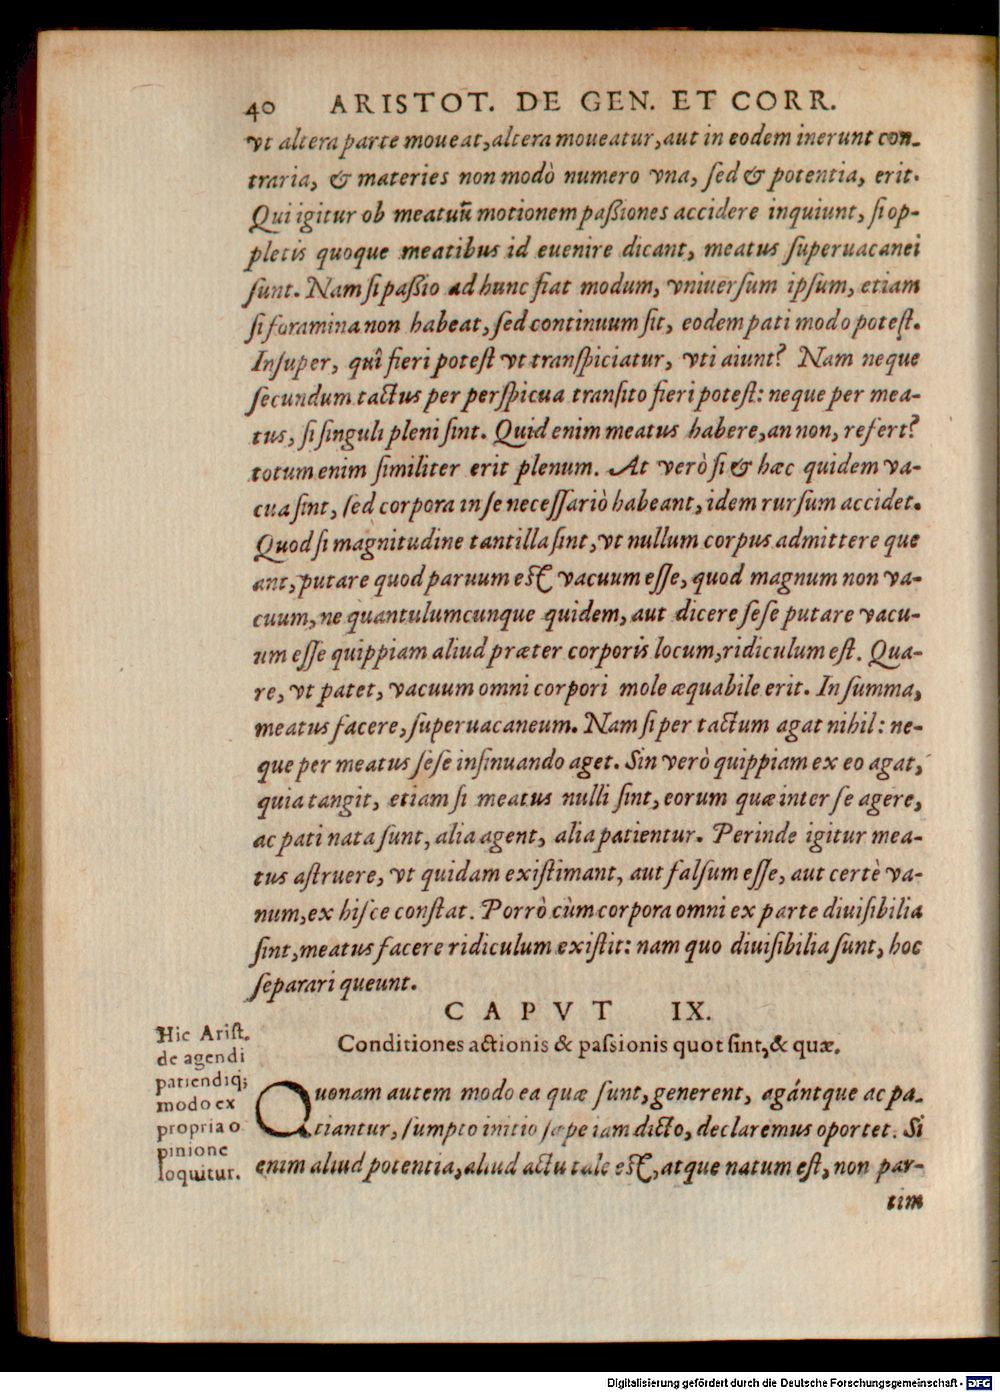 40 ARISTOT. DE GEN. ET CORR.
vt altera parte moueat, altera moueatur, aut in eodem inerunt con-
traria, & materies non modò numero vna, sed & potentia, erit.
Qui igitur ob meatuũ motionem paßiones accidere inquiunt, si op-
pletis quoque meatibus id euenire dicant, meatus superuacanei
sunt. Nam si paßio ad hunc fiat modum, vniuersum ipsum, etiam
si foramina non habeat, sed continuum sit, eodem pati modo potest.
Insuper, quî fieri potest vt transpiciatur, vti aiunt? Nam neque
secundum tactus per perspicua transito fieri potest: neque per mea-
tus, si singuli pleni sint. Quid enim meatus habere, an non, refert?
totum enim similiter erit plenum. At verò si & hæc quidem va-
cua sint, sed corpora in se necessariò habeant, idem rursum accidet.
Quod si magnitudine tantilla sint, vt nullum corpus admittere que
ant, putare quod paruum est vacuum esse, quod magnum non va-
cuum, ne quantulumcunque quidem, aut dicere sese putare vacu-
um esse quippiam aliud præter corporis locum, ridiculum est. Qua-
re, vt patet, vacuum omni corpori mole æquabile erit. In summa,
meatus facere, superuacaneum. Nam si per tactum agat nihil: ne-
que per meatus sese insinuando aget. Sin verò quippiam ex eo agat,
quia tangit, etiam si meatus nulli sint, eorum quæ inter se agere,
ac pati nata sunt, alia agent, alia patientur. Perinde igitur mea-
tus astruere, vt quidam existimant, aut falsum esse, aut certè va-
num, ex hisce constat. Porrò cùm corpora omni ex parte diuisibilia
sint, meatus facere ridiculum existit: nam quo diuisibilia sunt, hoc
separari queunt.
CAPVT IX.
Conditiones actionis & passionis quot sint, & quæ.
Hic Arist.
de agendi
patiendiq;
modo ex
propria o
pinione
loquitur.
Quonam autem modo ea quæ sunt, generent, agántque ac pa-
tiantur, sumpto initio sæpe iam dicto, declaremus oportet. Si
enim aliud potentia, aliud actu tale est, atque natum est, non par-
tim
Digitalisierung gefördert durch die Deutsche Forschungsgemeinschaft - DFG